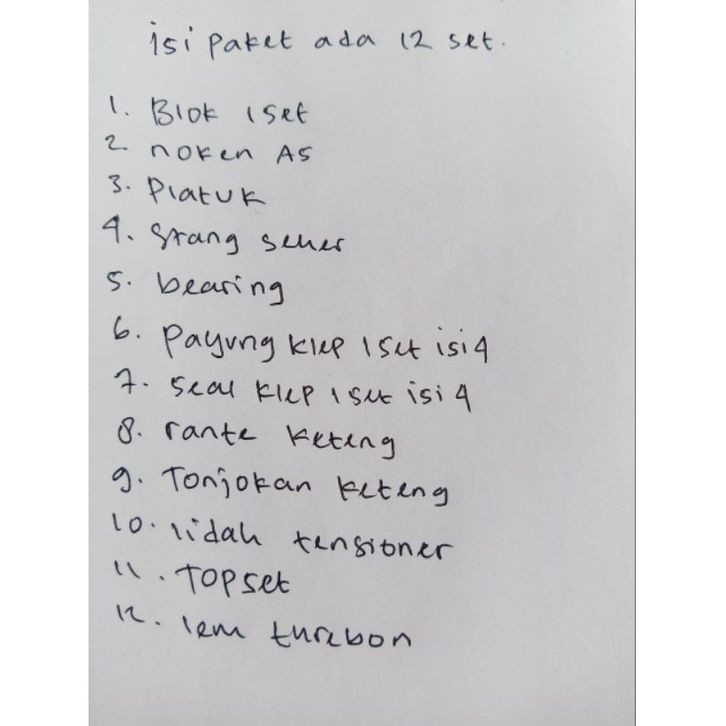 isi paket ada 12 set.
1. Blok 1 set
2 noken AS
3. Platuk
4. Stang seher
5. bearing
6. Payung klep 1 set isi 4
7. seal klep 1 set isi 4
8. rante keteng
9. Tonjokan keteng
10. lidah tensioner
11. TOPset
12. lem turebon